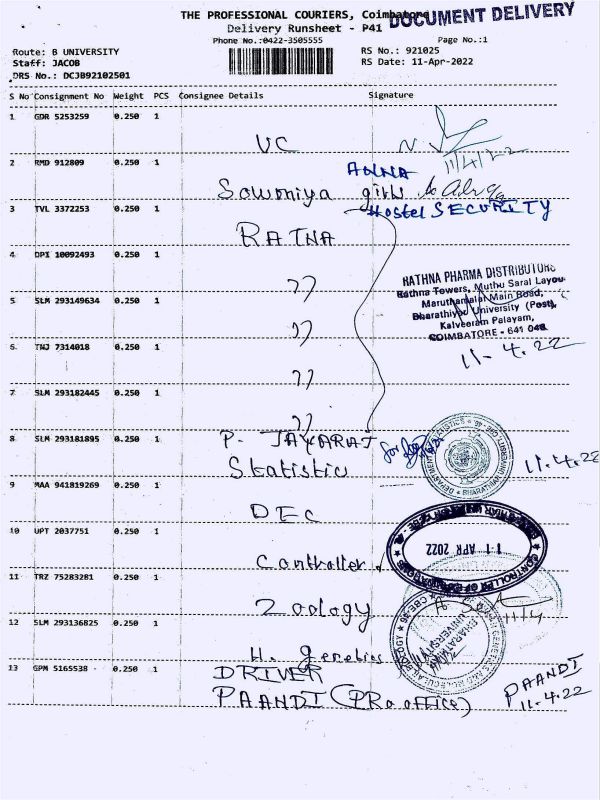 THE PROFESSIONAL COURIERS, Coimbatore
DOCUMENT DELIVERY
Delivery Runsheet - P41
Phone No.:0422-3505555
Page No.:1
Route: B UNIVERSITY
RS No.: 921025
Staff: JACOB
RS Date: 11-Apr-2022
DRS No.: DCJB92102501
S No Consignment No Weight PCS Consignee Details Signature
1 GDR 5253259 0.250 1
VC
11/4/22
2 RMD 912809 0.250 1
ANNA
Sowmniya girls
Hostel SECURITY
3 TVL 3372253 0.250 1
RATNA
4 DPI 10092493 0.250 1
RATHNA PHARMA DISTRIBUTORS
Rathna Towers, Muthu Saral Layou
Maruthamalai Main Road,
Bharathiyar University (Post),
Kalveeram Palayam,
COIMBATORE - 641 046.
11-4.22
5 SLM 293149634 0.250 1
6 TNJ 7314018 0.250 1
7 SLM 293182445 0.250 1
8 SLM 293181895 0.250 1
P. JAYARAJ
Statistic
11.4.22
9 MAA 941819269 0.250 1
DEC
10 UPT 2037751 0.250 1
11 APR 2022
Controller
11 TRZ 75283281 0.250 1
Zoology
11/4
12 SLM 293136825 0.250 1
H. genetics
13 GPM 5165538 0.250 1
DRIVER
PAANDI (PRo office)
PAANDI
11.4.22